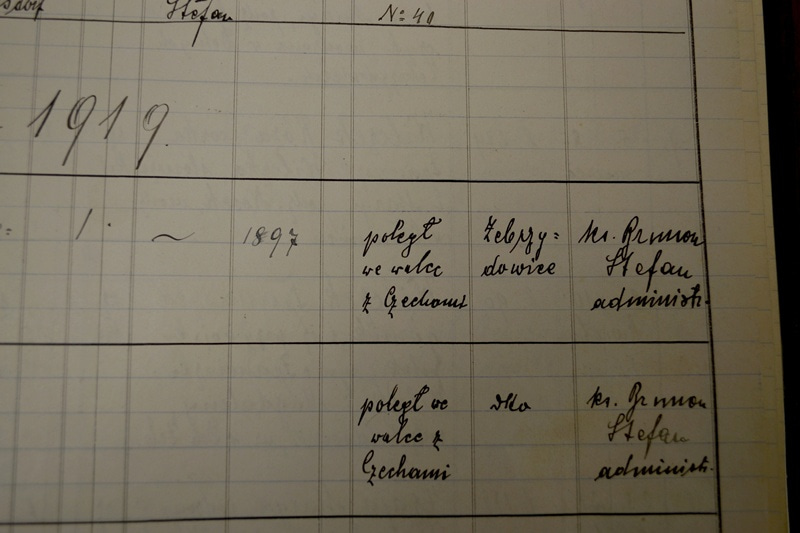 Stefan
No: 40
1919.
1.
~
1897
poległ
we walce
z Czechami
Zebrzy=
dowice
ks. Brzuson
Stefan
administr.
poległ we
walce z
Czechami
dto
ks. Brzuson
Stefan
administr.